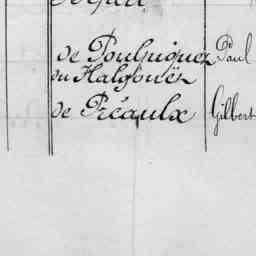 de Poulpiquet Paul
du Halgouët
de Préaulx Gilbert